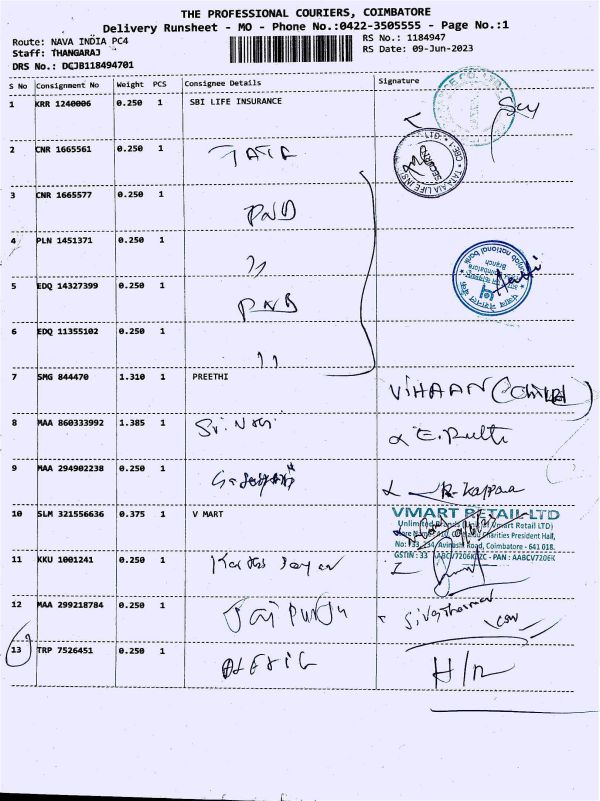 THE PROFESSIONAL COURIERS, COIMBATORE
Delivery Runsheet - MO - Phone No.:0422-3505555 - Page No.:1
Route: NAVA INDIA PC4
RS No.: 1184947
Staff: THANGARAJ
RS Date: 09-Jun-2023
DRS No.: DCJB118494701
S No Consignment No Weight PCS Consignee Details Signature
1 KRR 1240006 0.250 1 SBI LIFE INSURANCE
2 CNR 1665561 0.250 1 TATA
3 CNR 1665577 0.250 1 PNB
4 PLN 1451371 0.250 1 "
5 EDQ 14327399 0.250 1 PNB
6 EDQ 11355102 0.250 1 "
7 SMG 844470 1.310 1 PREETHI VIHAAN
8 MAA 860333992 1.385 1 Sri
9 MAA 294902238 0.250 1
10 SLM 321556636 0.375 1 V MART
VMART RETAIL LTD
Retail LTD)
Charities President Hall,
Avinashi Road, Coimbatore - 641 018.
GSTIN : 33 PAN : AABCV7206K
11 KKU 1001241 0.250 1
12 MAA 299218784 0.250 1
13 TRP 7526451 0.250 1 H/R